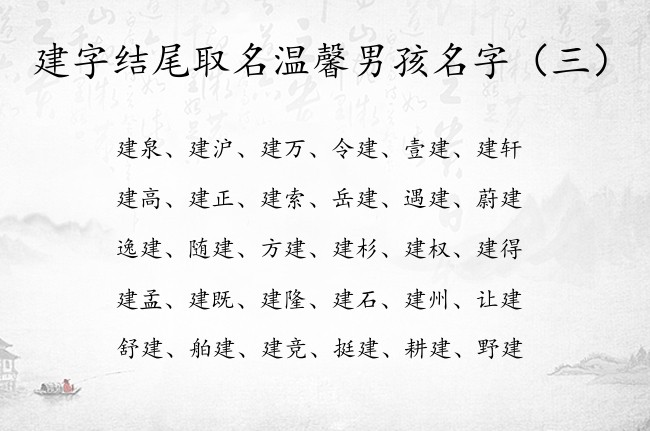 建字结尾取名温馨男孩名字（三）
建泉、建沪、建万、令建、壹建、建轩
建高、建正、建索、岳建、遇建、蔚建
逸建、随建、方建、建杉、建权、建得
建孟、建既、建隆、建石、建州、让建
舒建、舶建、建竞、挺建、耕建、野建